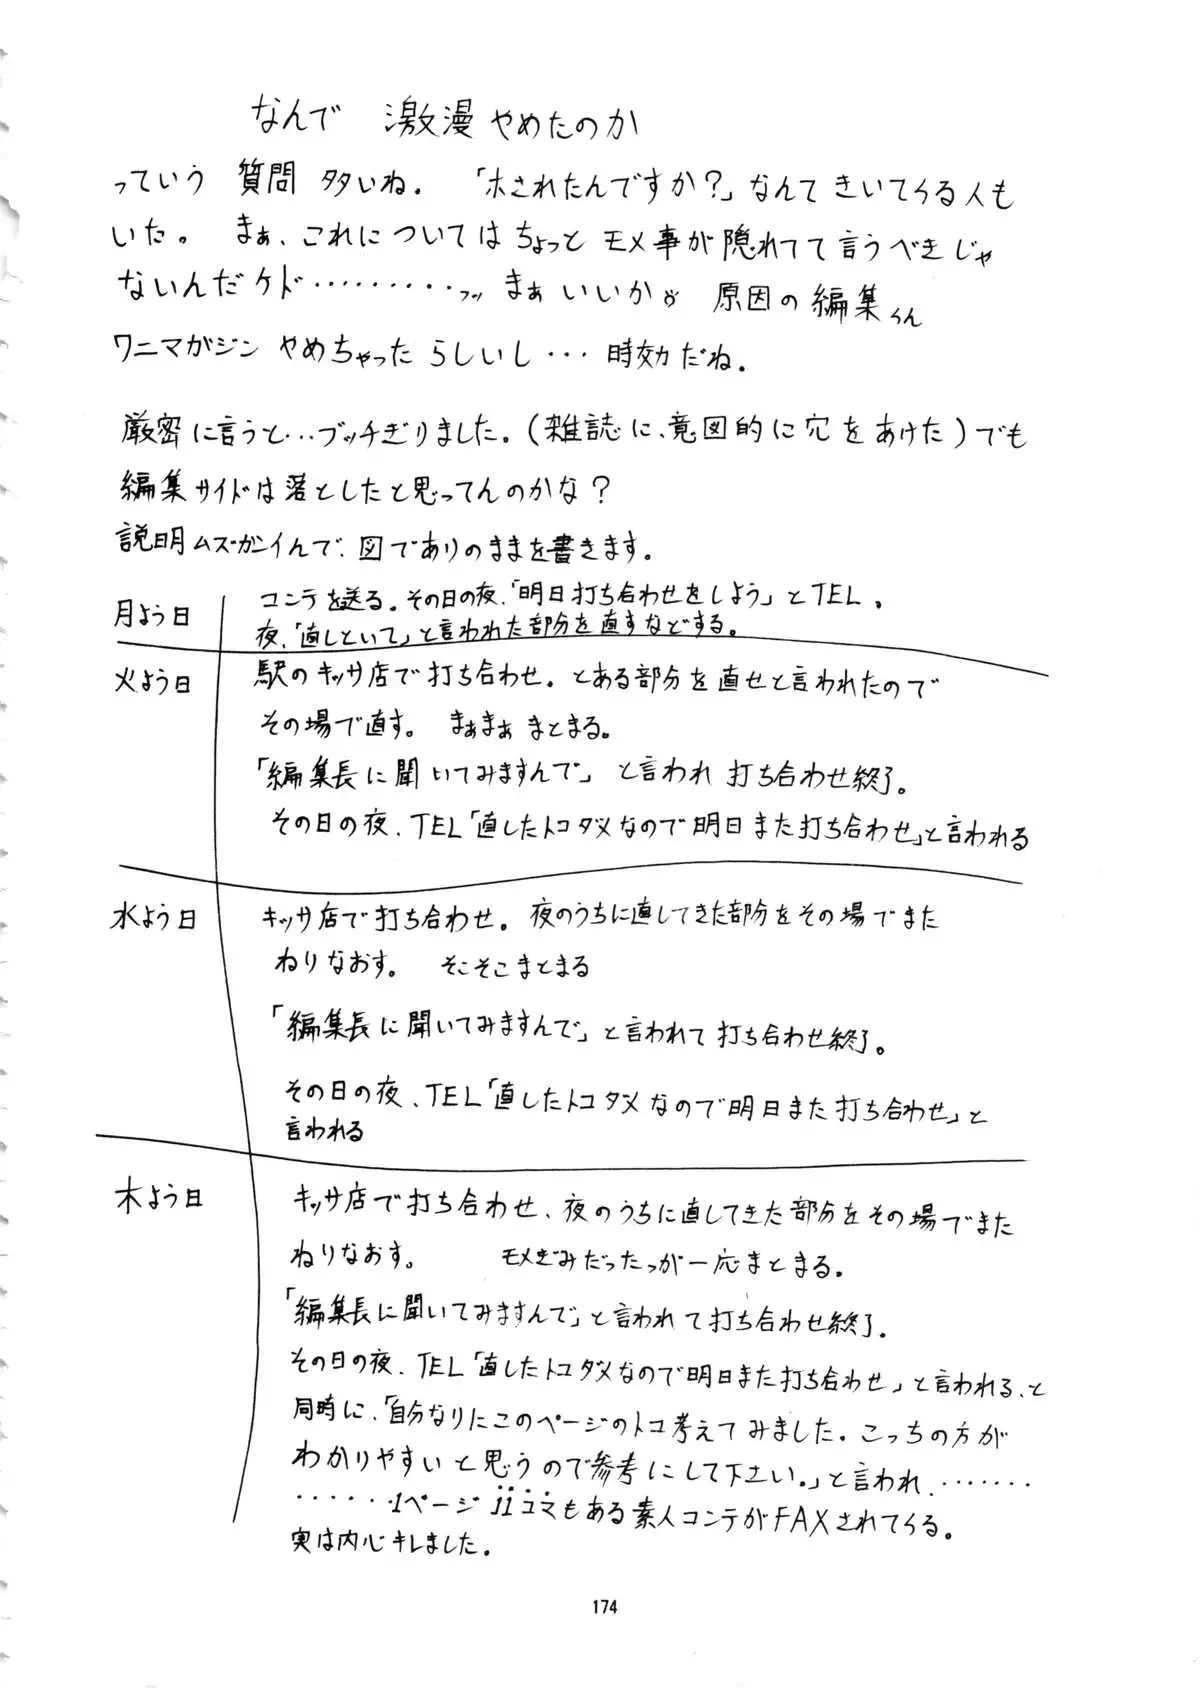 なんで 激漫やめたのか
っていう 質問 多いね。 「ホされたんですか?」なんてきいてくる人も
いた。 まぁ、これについてはちょっと モメ事が隠れてて言うべきじゃ
ないんだケド・・・・・・・・・フッ まぁいいか 原因の編集くん
ワニマガジン やめちゃった らしいし・・・ 時効だね。
厳密に言うと…ブッチぎりました。(雑誌に、意図的に穴をあけた)でも
編集サイドは落としたと思ってんのかな?
説明ムズカシイんで、図でありのままを書きます。
月よう日
コンテを送る。その日の夜、「明日打ち合わせをしよう」とTEL。
夜、「直しといて」と言われた部分を直すなどする。
火よう日
駅のキッサ店で打ち合わせ。とある部分を直せと言われたので
その場で直す。 まぁまぁ まとまる。
「編集長に聞いてみますんで」 と言われ 打ち合わせ終了。
その日の夜、TEL「直したトコダメなので明日また打ち合わせ」と言われる
水よう日
キッサ店で打ち合わせ。夜のうちに直してきた部分をその場でまた
ねりなおす。 そこそこまとまる
「編集長に聞いてみますんで」と言われて打ち合わせ終了。
その日の夜、TEL「直したトコダメなので明日また打ち合わせ」と
言われる
木よう日
キッサ店で打ち合わせ、夜のうちに直してきた部分をその場でまた
ねりなおす。 モメぎみだったっが一応まとまる。
「編集長に聞いてみますんで」と言われて打ち合わせ終了。
その日の夜、TEL「直したトコダメなので明日また打ち合わせ」と言われる、と
同時に、「自分なりにこのページのトコ考えてみました。こっちの方が
わかりやすいと思うので参考にして下さい。」と言われ、・・・・・・・
・・・・・・1ページ 11コマもある素人コンテがFAXされてくる。
実は内心キレました。
174